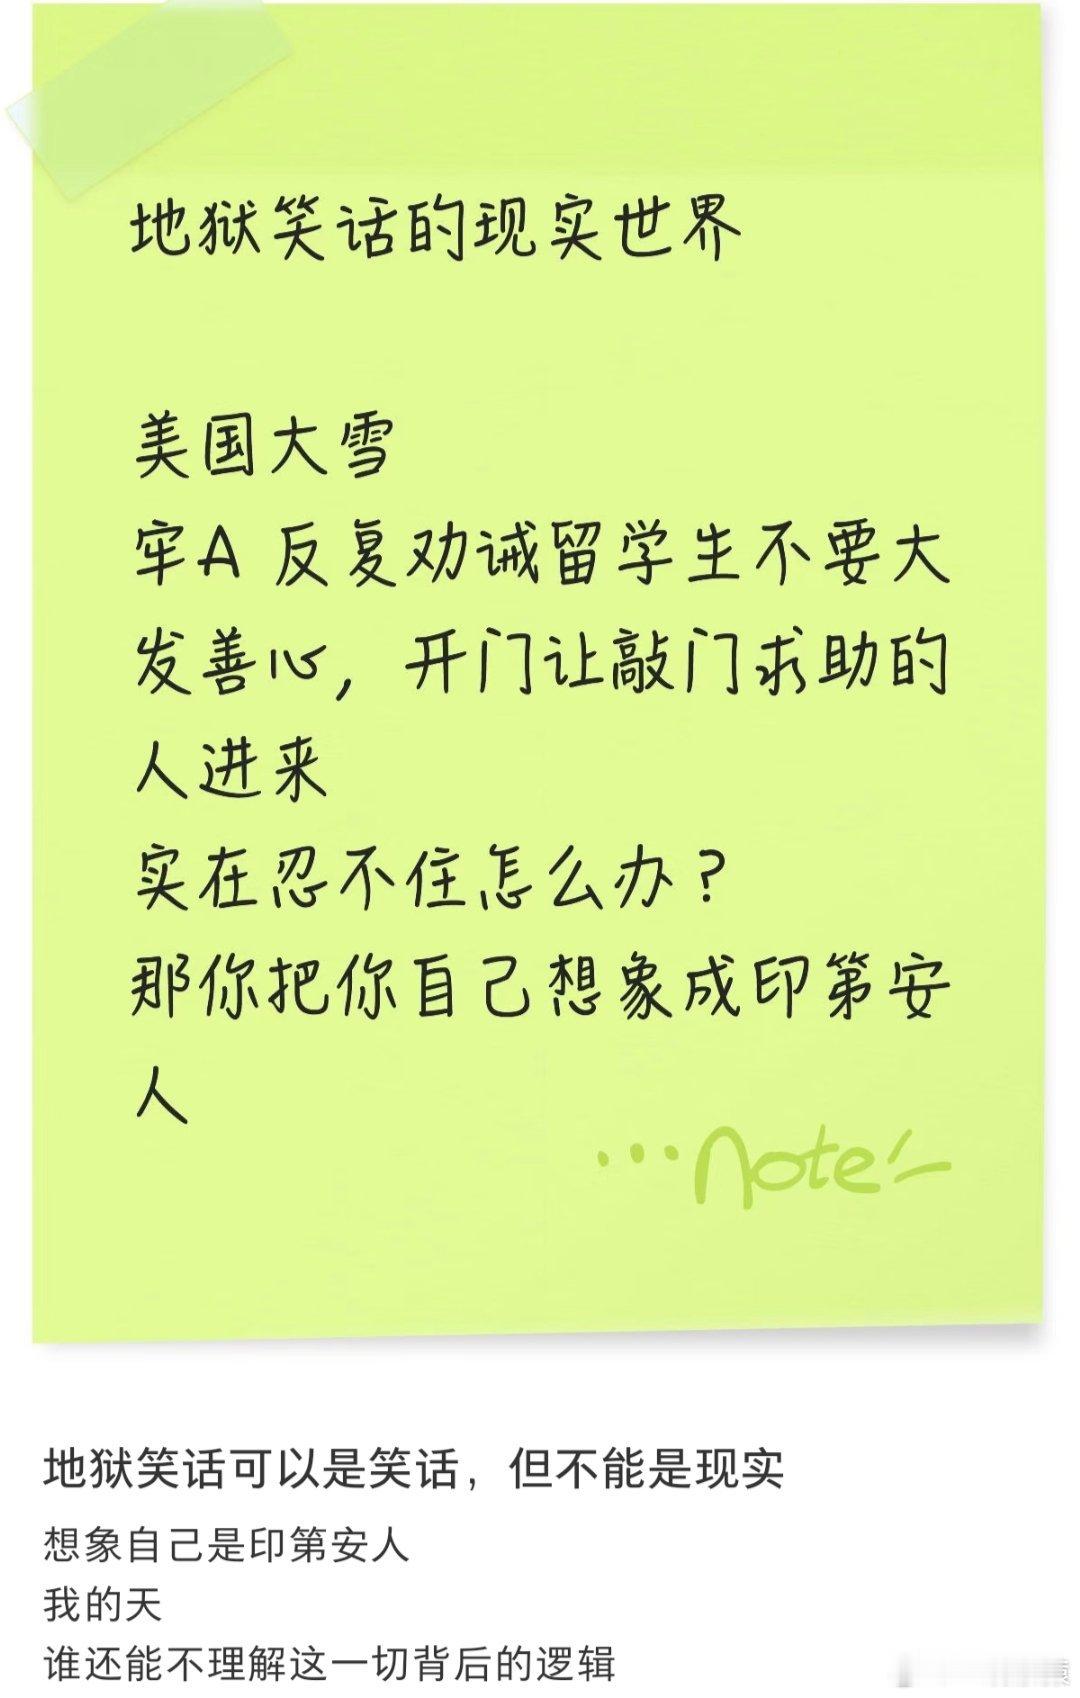 地狱笑话的现实世界
美国大雪
牢A 反复劝诫留学生不要大
发善心，开门让敲门求助的
人进来
实在忍不住怎么办？
那你把你自己想象成印第安
人
...note
地狱笑话可以是笑话，但不能是现实
想象自己是印第安人
我的天
谁还能不理解这一切背后的逻辑